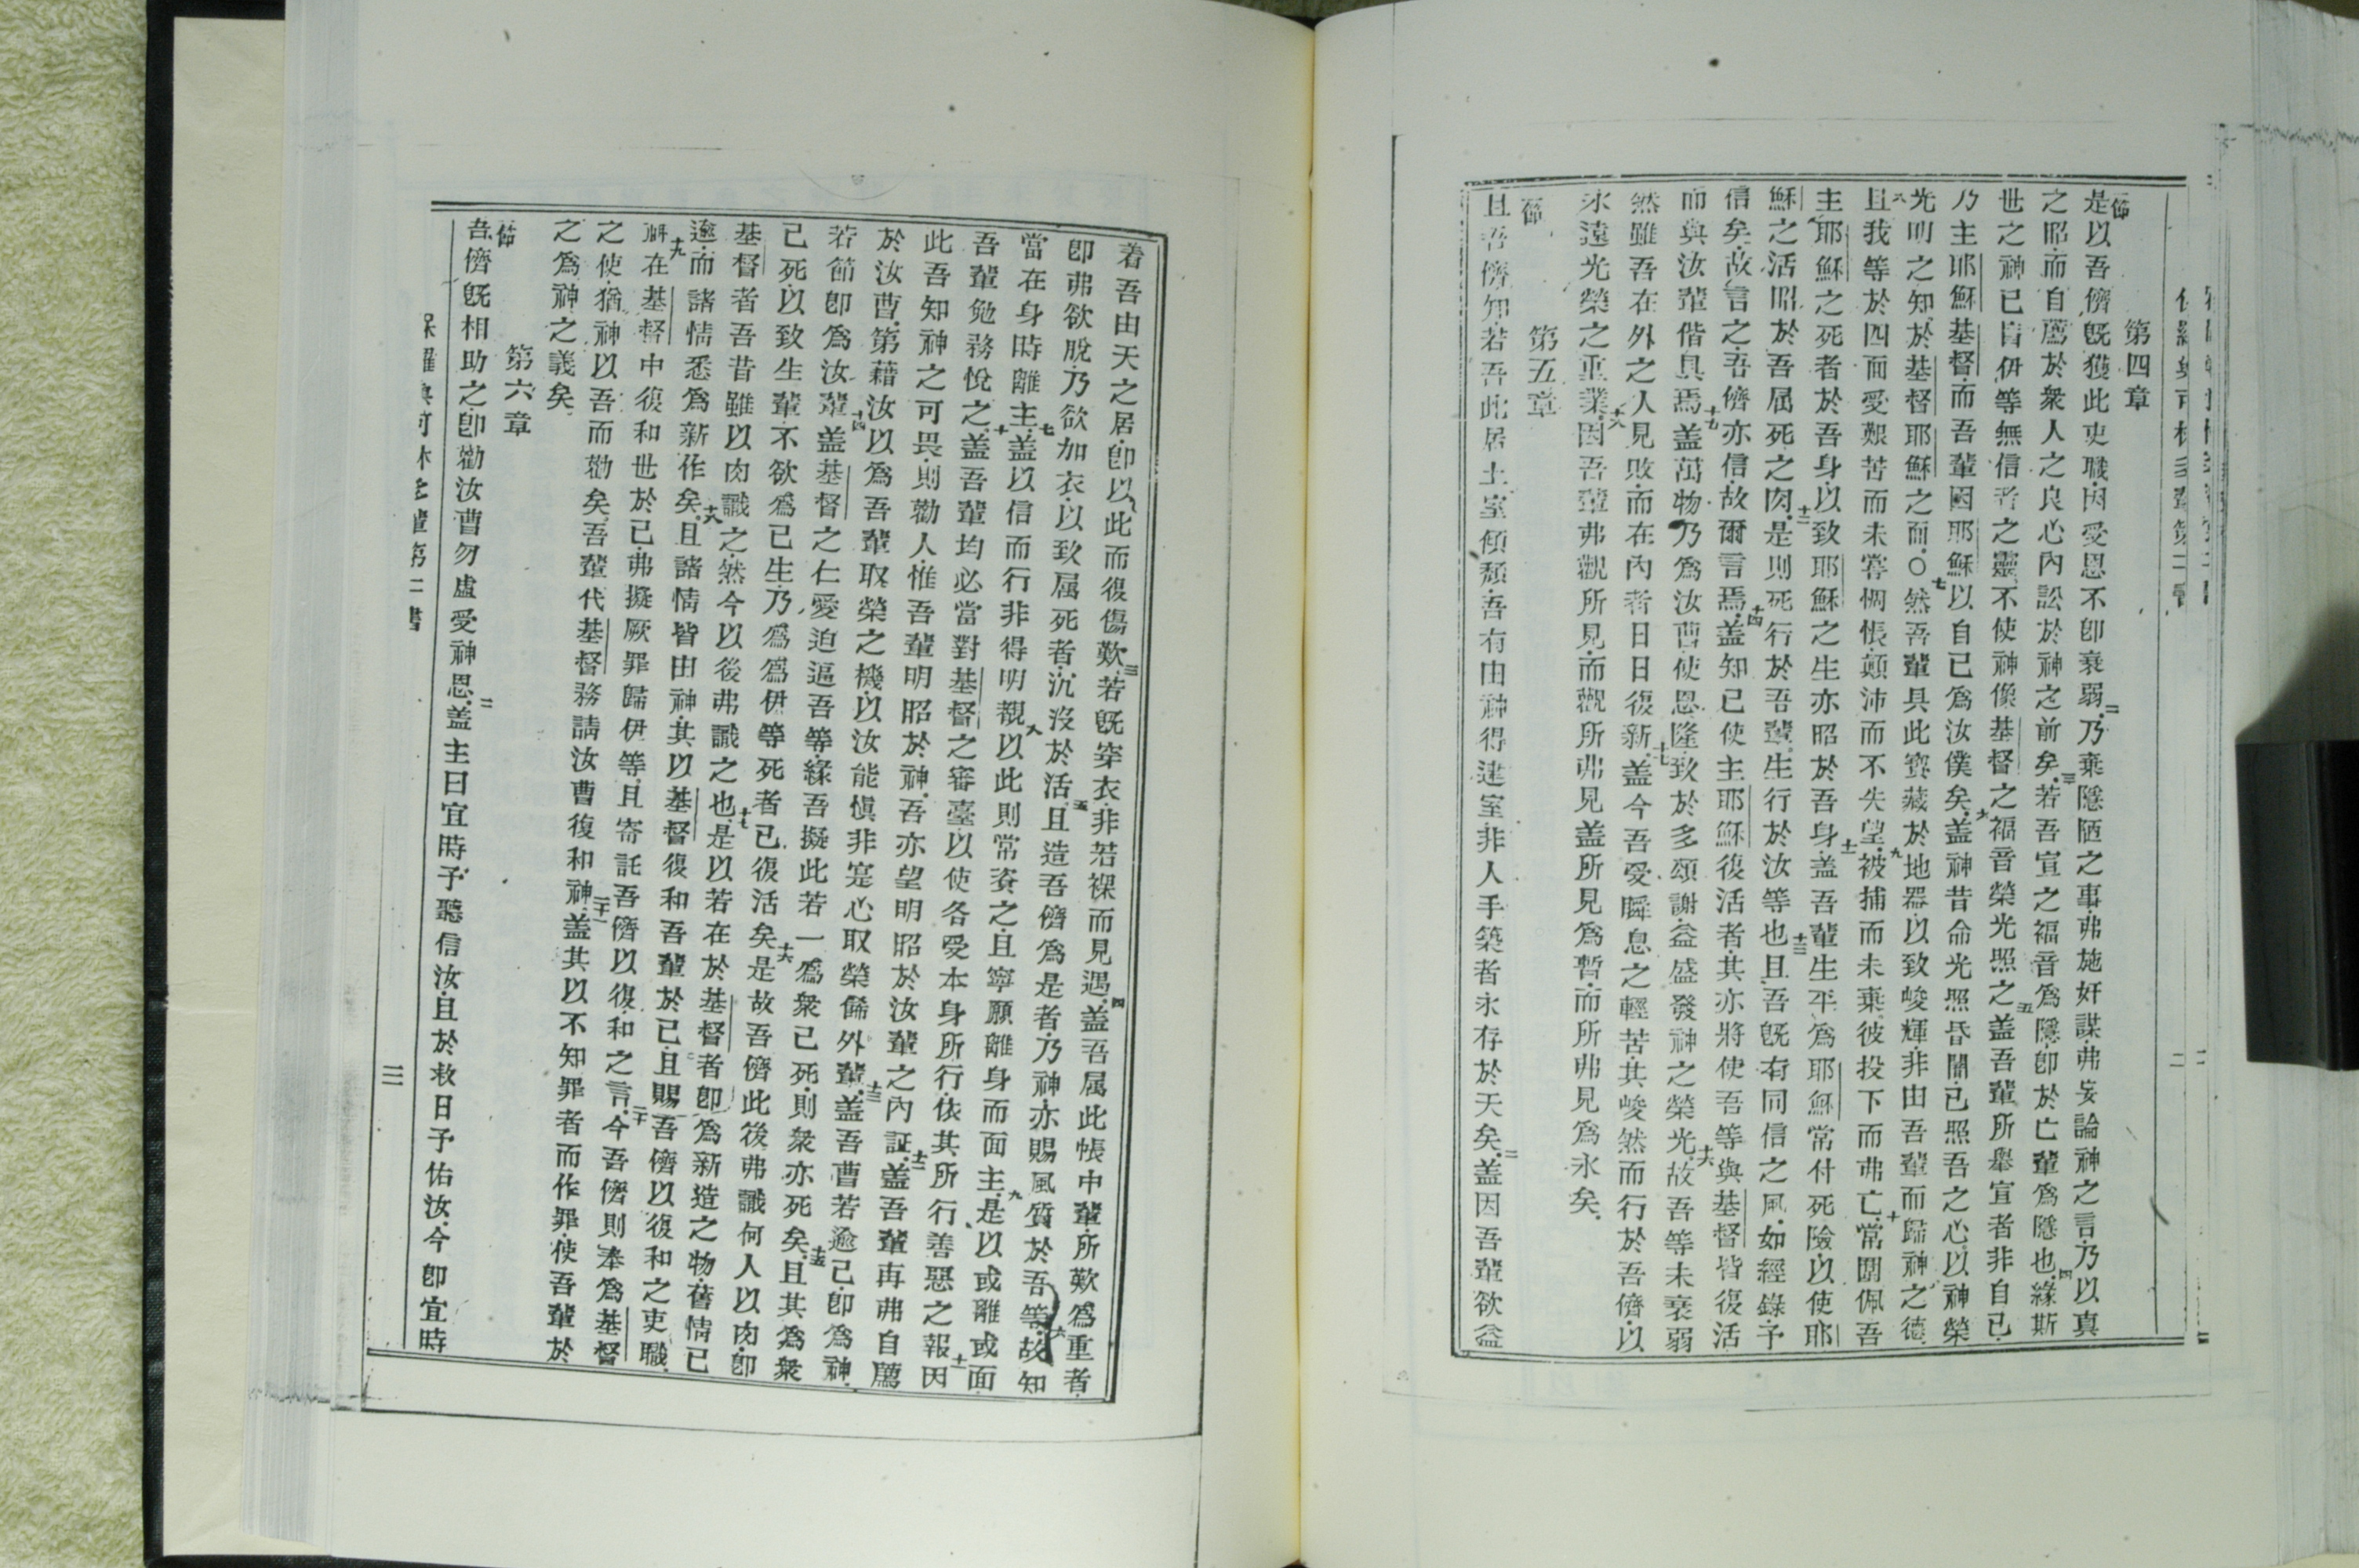 第四章
節是以吾儕既獲此吏職.因受恩不卽衰弱.二乃棄隱陋之事.弗施奸謀.弗妄論神之言.乃以真
之昭.而自薦於衆人之良心內訟於神之前矣.三若吾宣之福音爲隱.卽於亡輩爲隱也.四緣斯
世之神已盲伊等無信者之靈.不使神像基督之福音榮光照之.五盖吾輩所舉宣者非自己.
乃主耶穌基督.而吾輩因耶穌以自己爲汝僕矣.六盖神昔命光照昏闇.已照吾之心.以神榮
光明之知.於基督耶穌之面.〇七然吾輩具此寶藏於地器.以致峻輝非由吾輩而歸神之德.
八且我等於四面受艱苦而未窘.惆悵.顛沛而不失望.九被捕而未棄.彼投下而弗亡.十常圍佩吾
主耶穌之死者於吾身.以致耶穌之生亦昭於吾身.十一盖吾輩生平爲耶穌常付死險.以使耶
穌之活昭於吾屬死之肉.十二是則死行於吾輩.生行於汝等也.十三且吾既有同信之風.如經錄.予
信矣.故言之.吾儕亦信.故爾言焉.十四盖知已使主耶穌復活者.其亦將使吾等與基督皆復活
而與汝輩偕具焉.十五盖萬物乃爲汝曹.使恩隆致於多頌謝.益盛發神之榮光.十六故吾等未衰弱
然雖吾在外之人見敗.而在內者日日復新.十七盖今吾受瞬息之輕苦.其峻然而行於吾儕.以
永遠光榮之重業.十八因吾輩弗觀所見.而觀所弗見.盖所見爲暫.而所弗見爲永矣.
第五章
節且吾儕知若吾此居土室傾頹.吾有由神得建室.非人手築者.永存於天矣.二盖因吾輩欲益
着吾由天之居.卽以此而復傷歎.三若既穿衣.非若裸而見遇.四盖吾屬此帳中輩.所歎爲重者.
卽弗欲脫.乃欲加衣.以致屬死者.沉沒於活.五且造吾儕爲是者.乃神.亦賜風質於吾等.六故知
當在身時離主.七盖以信而行非得明覩.八以此則常資之.且寧願離身而面主.九是以或離或面
吾輩勉務悅之.十盖吾輩均必當對基督之審臺.以使各受本身所行.依其所行善惡之報.十一因
此吾知神之可畏.則勸人.惟吾輩明昭於神.吾亦望明昭於汝輩之內証.十二盖吾輩再弗自薦
於汝曹.第藉汝以爲吾輩取榮之機.以汝能愼非寔心取榮餙外輩.十三盖吾曹若逾己.卽爲神.
若節卽爲汝輩.十四盖基督之仁愛迫逼吾等.緣吾擬此.若一爲衆已死.則衆亦死矣.十五且其爲衆
己死.以致生輩.不欲爲己生.乃爲爲伊等死者.已復活矣.十六是故吾儕此後弗識何人以肉.卽
基督者吾昔雖以肉識之.然今以後弗識之也.十七是以若在於基督者.卽爲新造之物.舊情已
逾.而諸情悉爲新作矣.十八且諸情皆由神.其以基督復和吾輩於己.且賜吾儕以復和之吏職.
十九在基督中復和世於己.弗擬厥罪歸伊等.且寄託吾儕以復和之言.二十今吾儕則奉爲基督
之使.猶神以吾而勸矣.吾輩代基督務請汝曹復和神.二十一盖其以不知罪者而作罪.使吾輩於
之爲神之義矣.
第六章
節吾儕既相助之.卽勸汝曹勿虛受神恩.二盖主曰宜時.予聽信汝.且於救日予佑汝.今卽宜時
三